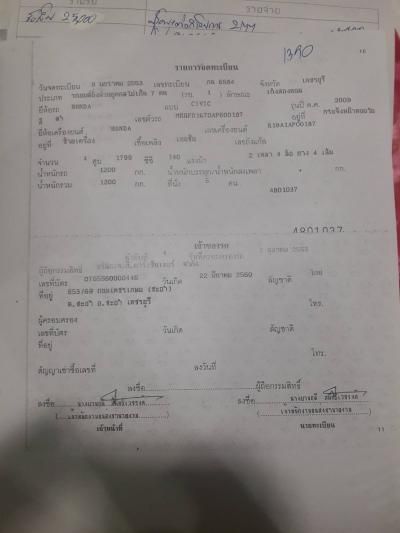 รายรับ
รายจ่าย
23,000
1390
16
รายการจดทะเบียน
วันจดทะเบียน 8 มกราคม 2553 เลขทะเบียน กล 6584 จังหวัด เพชรบุรี
ประเภท รถยนต์นั่งส่วนบุคคลไม่เกิน 7 คน (รย. 1) ลักษณะ เก๋งสองตอน
ยี่ห้อรถ HONDA แบบ CIVIC รุ่นปี ค.ศ. 2009
สี ดำ
ยี่ห้อเครื่องยนต์ HONDA เลขเครื่องยนต์ R18A1AP00187
อยู่ที่ ขวาเครื่อง เชื้อเพลิง เบนซิน เลขถังแก๊ส
จำนวน 4 สูบ 1799 ซีซี 140 แรงม้า 2 เพลา 4 ล้อ ยาง 4 เส้น
น้ำหนักรถ 1200 กก. น้ำหนักบรรทุก/น้ำหนักลงเพลา - กก.
น้ำหนักรวม 1200 กก. ที่นั่ง คน
4801037
4801037
เจ้าของรถ
ผู้ถือกรรมสิทธิ์
เลขที่บัตร 0765560000446 วันเกิด 22 มีนาคม 2560 สัญชาติ ไทย
ที่อยู่ 853/69 ถนนเพชรเกษม (ชะอำ)
ต.ชะอำ อ.ชะอำ เพชรบุรี โทร.
ผู้ครอบครอง
เลขที่บัตร วันเกิด สัญชาติ
ที่อยู่
โทร.
สัญญาเช่าซื้อเลขที่ ลงวันที่
ลงชื่อ ผู้ถือกรรมสิทธิ์
ลงชื่อ ลงชื่อ
(เจ้าพนักงานขนส่งชำนาญงาน) (เจ้าพนักงานขนส่งชำนาญงาน)
เจ้าหน้าที่ นายทะเบียน
11